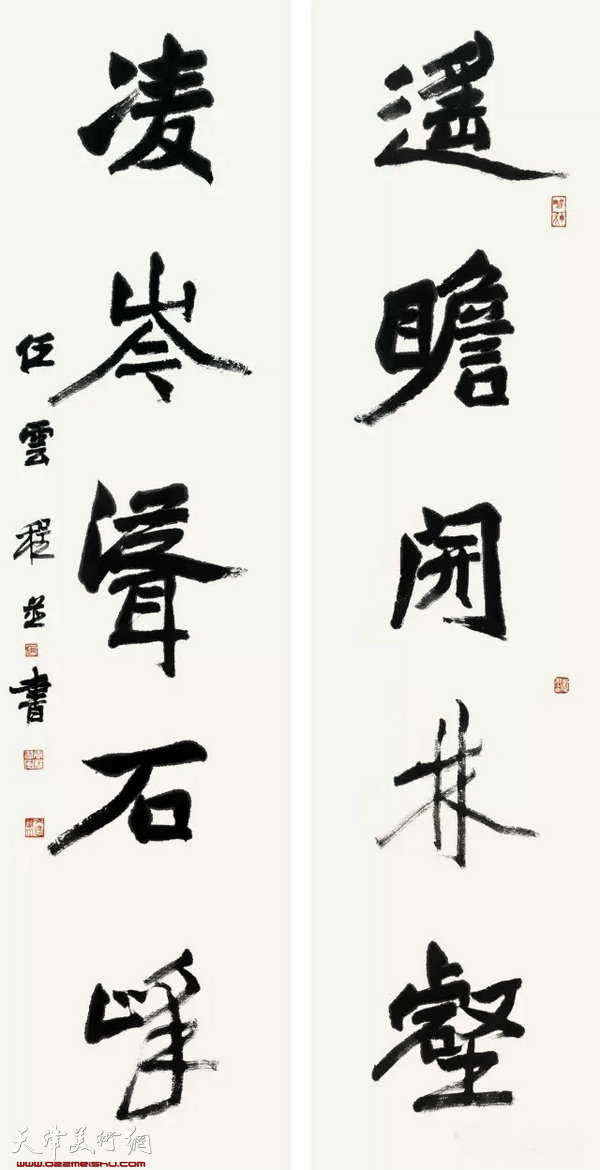 遙瞻開林壑
凌岑聳石峰
任雲程並書
天津美術網
www.022meishu.com